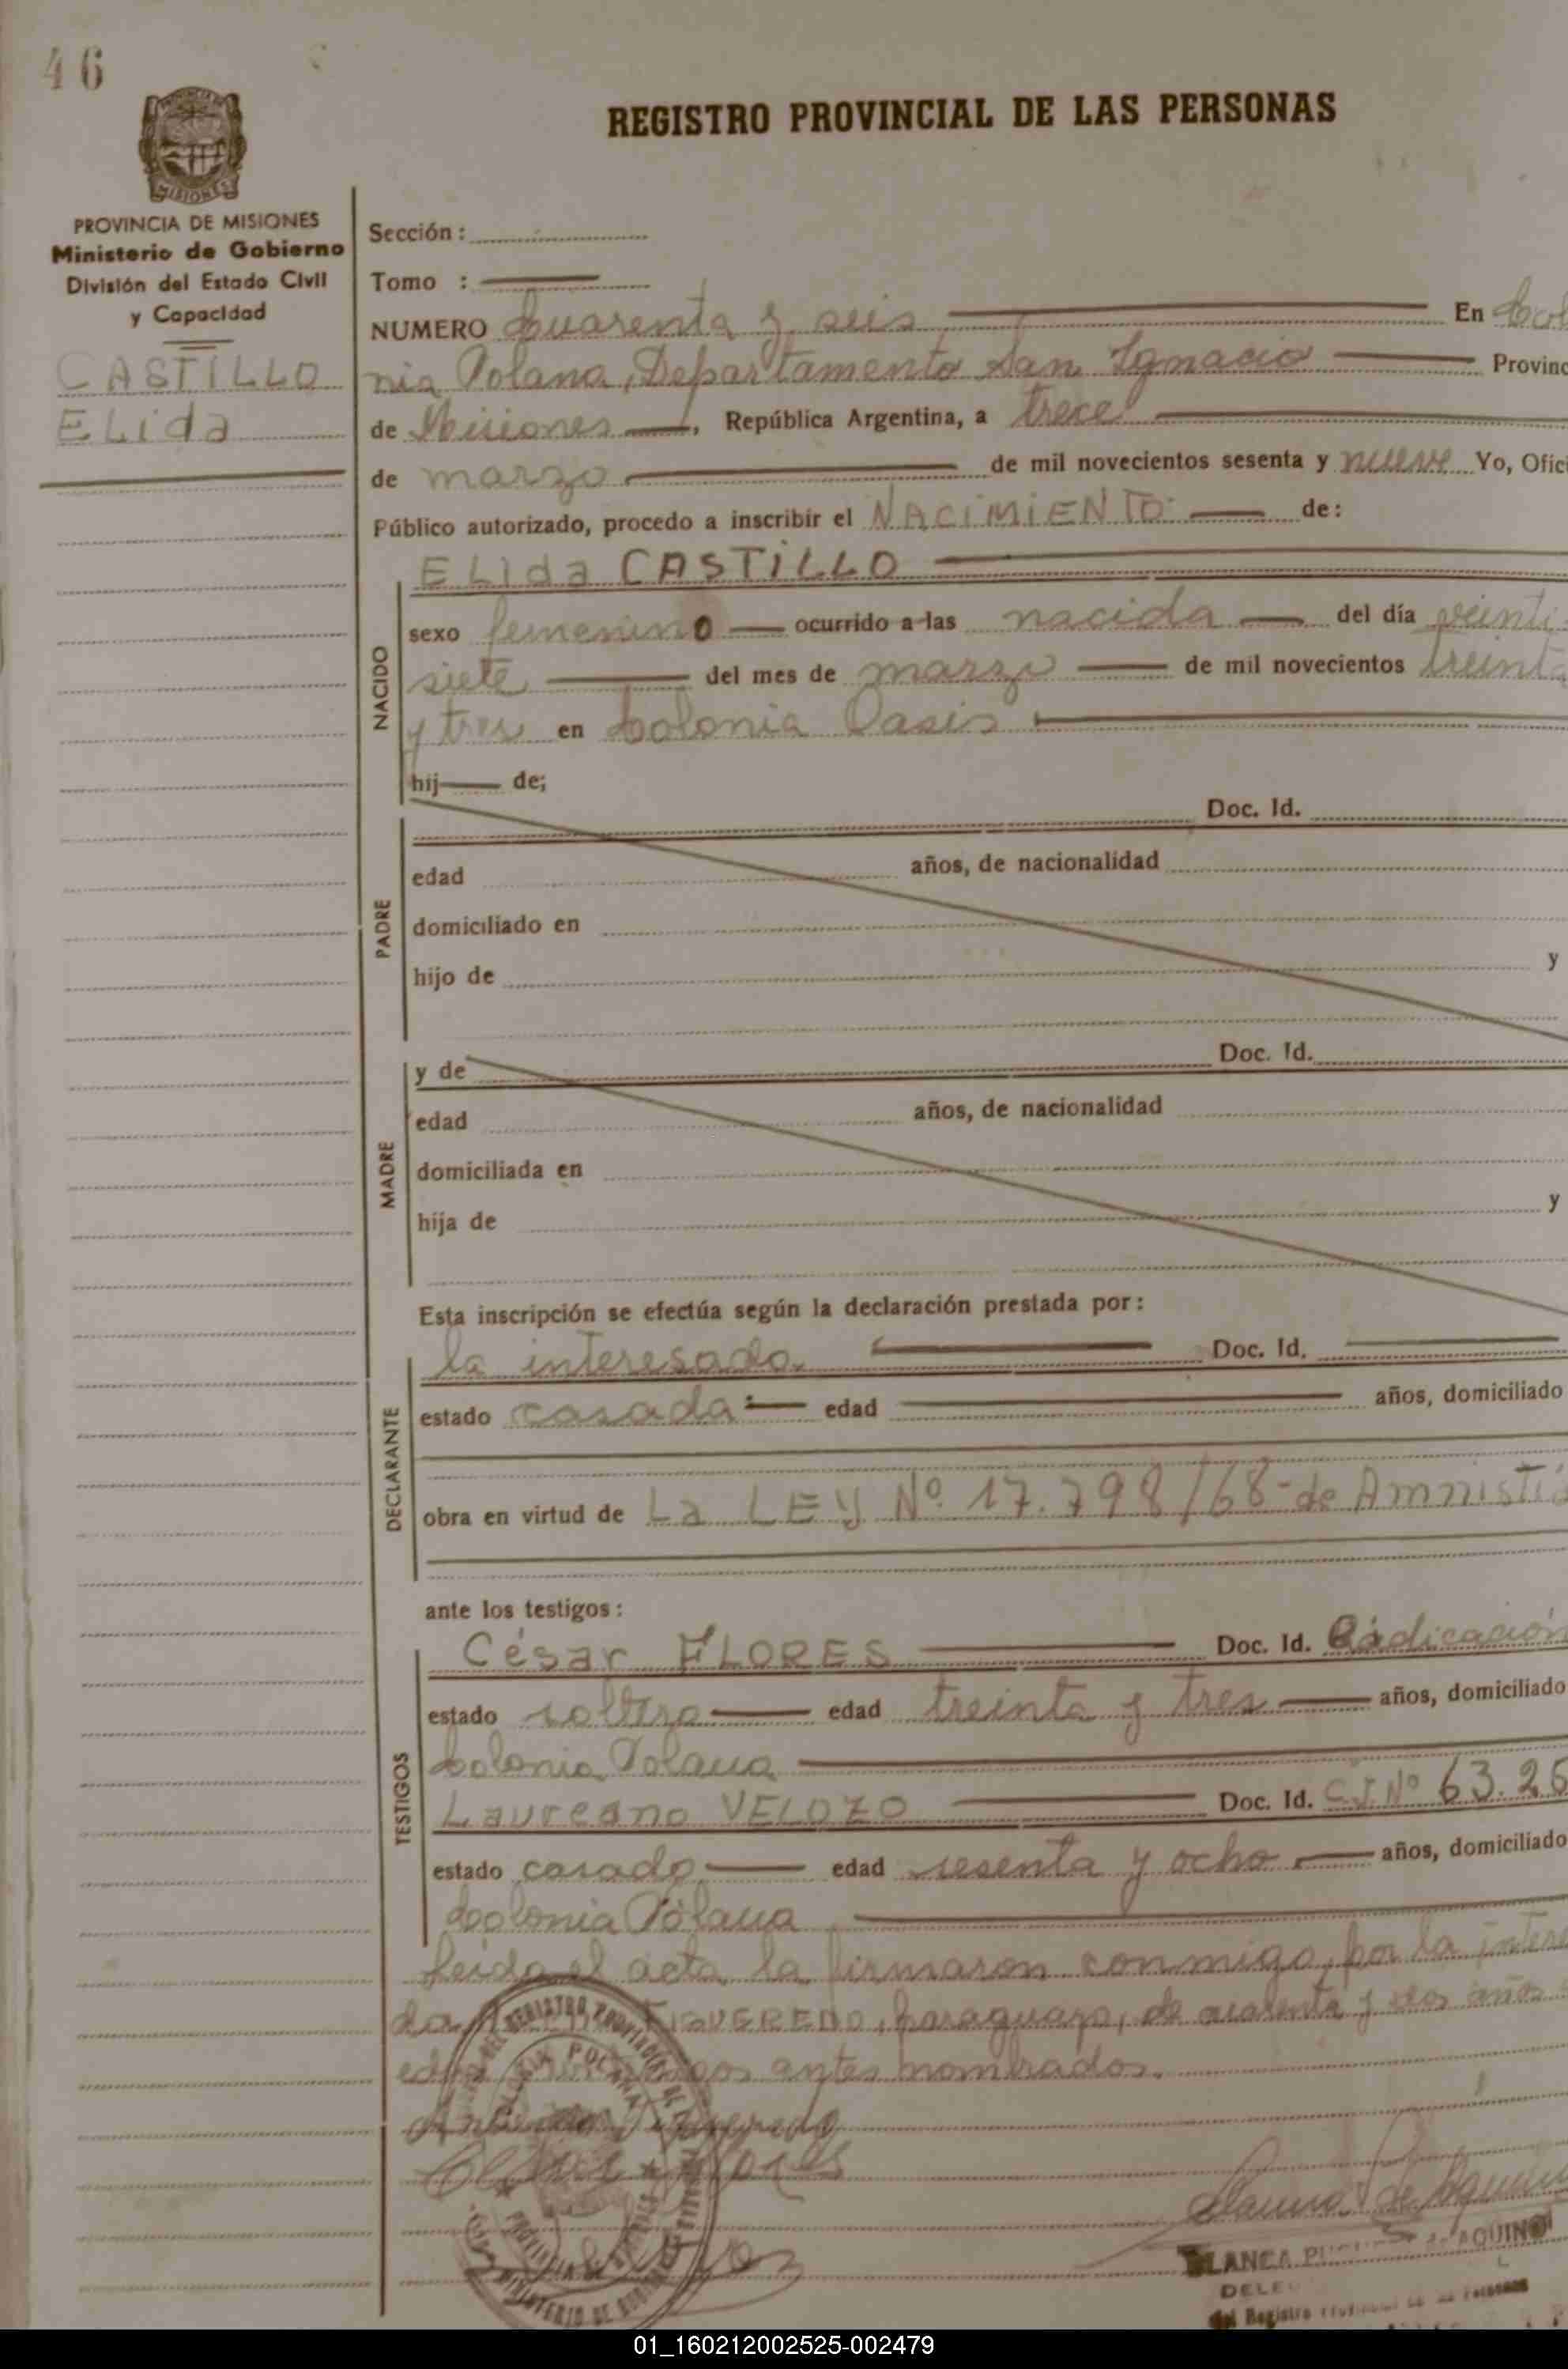 46
REGISTRO PROVINCIAL DE LAS PERSONAS
MISIONES
PROVINCIA DE MISIONES
Ministerio de Gobierno
División del Estado Civil
y Capacidad
CASTILLO
ELida
Sección :
Tomo :
NUMERO Cuarenta y seis En Colo
nia Polana, Departamento San Ignacio Provinc
de Misiones, República Argentina, a trece
de marzo de mil novecientos sesenta y nueve Yo, Ofici
Público autorizado, procedo a inscribir el NACIMIENTO de:
NACIDO
ELida CASTILLO
sexo femenino ocurrido a las nacida del día veinti
siete del mes de marzo de mil novecientos treinta
y tres en Colonia Oasis
hij de;
PADRE
Doc. Id.
edad años, de nacionalidad
domiciliado en
hijo de y
MADRE
y de Doc. Id.
edad años, de nacionalidad
domiciliada en
hija de y
Esta inscripción se efectúa según la declaración prestada por :
DECLARANTE
la interesada Doc. Id.
estado casada edad años, domiciliado
obra en virtud de La LEY Nº 17.798/68 - de Amnistía
ante los testigos :
TESTIGOS
César FLORES Doc. Id. Radicación
estado soltero edad treinta y tres años, domiciliado
Colonia Polana
Laureano VELOZO Doc. Id. C.I. Nº 63.26
estado casado edad sesenta y ocho años, domiciliado
Colonia Polana
Leida el acta la firmaron conmigo, por la intere
da FIGUEREDO, paraguayo, de cuarenta y dos años
antes nombrados.
AQUINO
DELE
del Registro
01_160212002525-002479